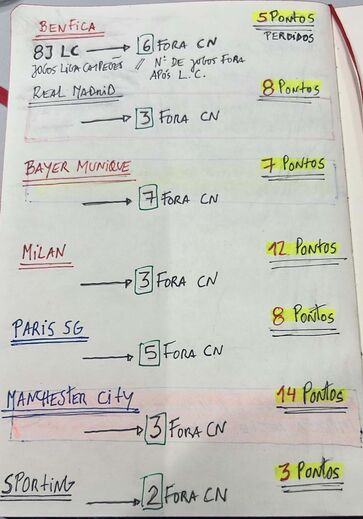 BENFICA 5 PONTOS
8J LC → 6 FORA CN PERDIDOS
JOGOS LIGA CAMPEÕES // Nº DE JOGOS FORA
APÓS L.C.
REAL MADRID 8 PONTOS
→ 3 FORA CN
BAYER MUNIQUE 7 PONTOS
→ 7 FORA CN
MILAN 12 PONTOS
→ 3 FORA CN
PARIS SG 8 PONTOS
→ 5 FORA CN
MANCHESTER City 14 PONTOS
→ 3 FORA CN
SPORTING 3 PONTOS
→ 2 FORA CN